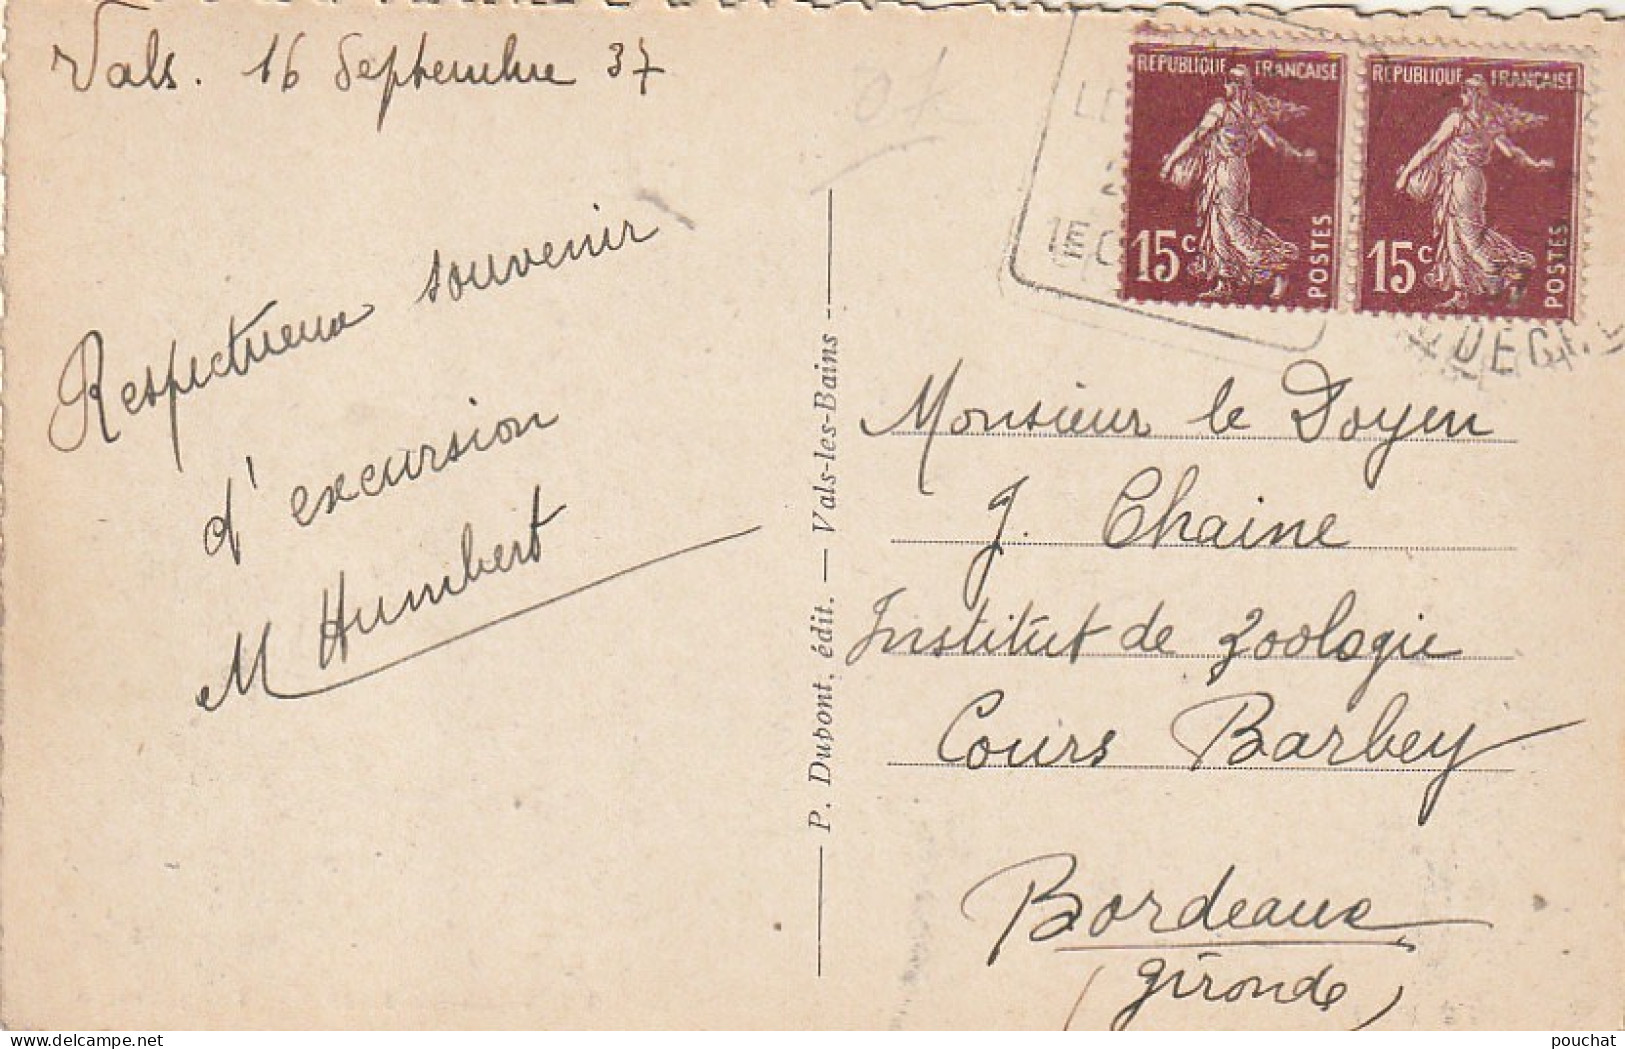 Vals. 16 Septembre 37
Respectueux souvenir
d'excursion
M Humbert
P. Dupont, édit. — Vals-les-Bains
RÉPUBLIQUE FRANÇAISE
15c POSTES
RÉPUBLIQUE FRANÇAISE
15c POSTES
Monsieur le Doyen
J. Chaine
Institut de Zoologie
Cours Barbey
Bordeaux
(Gironde)
pouchat